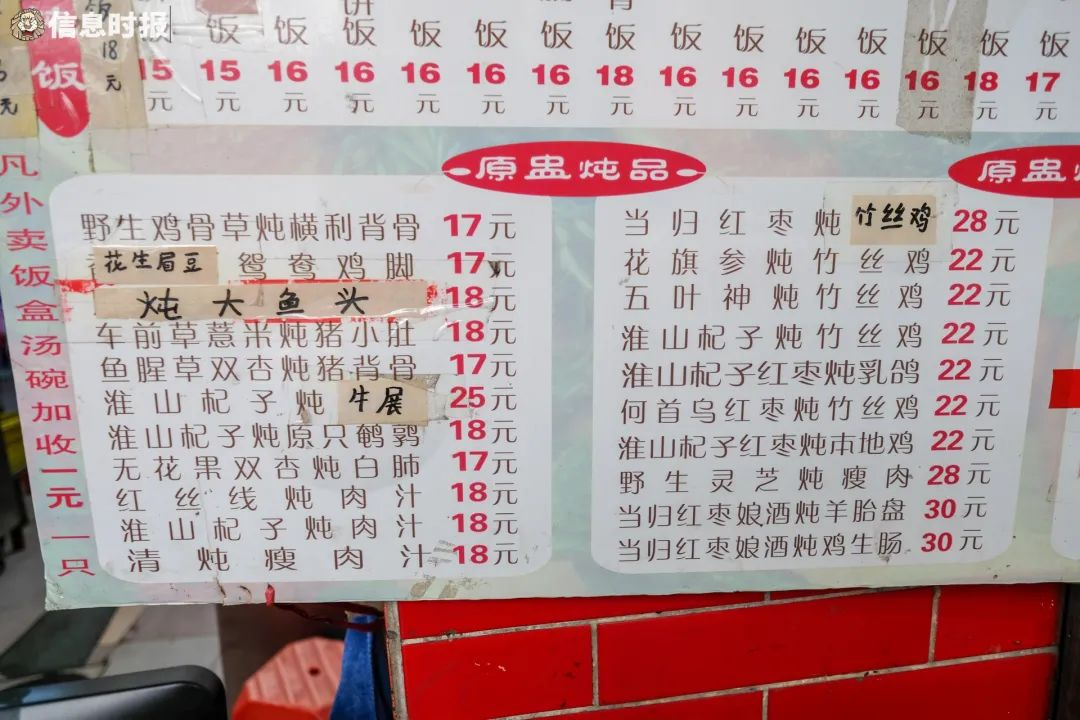 信息时报
饼
饭 18元
饭 饭 饭 饭 饭 饭 饭 饭 饭 饭 饭 饭 饭 饭 饭
15 15 16 16 16 16 16 18 16 16 16 16 16 18 17
元 元 元 元 元 元 元 元 元 元 元 元 元 元 元
凡外卖饭盒汤碗加收一元一只
原盅炖品
野生鸡骨草炖横利背骨 17元
花生眉豆 鸳鸯鸡脚 17元
炖大鱼头 18元
车前草薏米炖猪小肚 18元
鱼腥草双杏炖猪背骨 17元
淮山杞子炖牛展 25元
淮山杞子炖原只鹌鹑 18元
无花果双杏炖白肺 17元
红丝线炖肉汁 18元
淮山杞子炖肉汁 18元
清炖瘦肉汁 18元
当归红枣炖竹丝鸡 28元
花旗参炖竹丝鸡 22元
五叶神炖竹丝鸡 22元
淮山杞子炖竹丝鸡 22元
淮山杞子红枣炖乳鸽 22元
何首乌红枣炖竹丝鸡 22元
淮山杞子红枣炖本地鸡 22元
野生灵芝炖瘦肉 28元
当归红枣娘酒炖羊胎盘 30元
当归红枣娘酒炖鸡生肠 30元
原盅